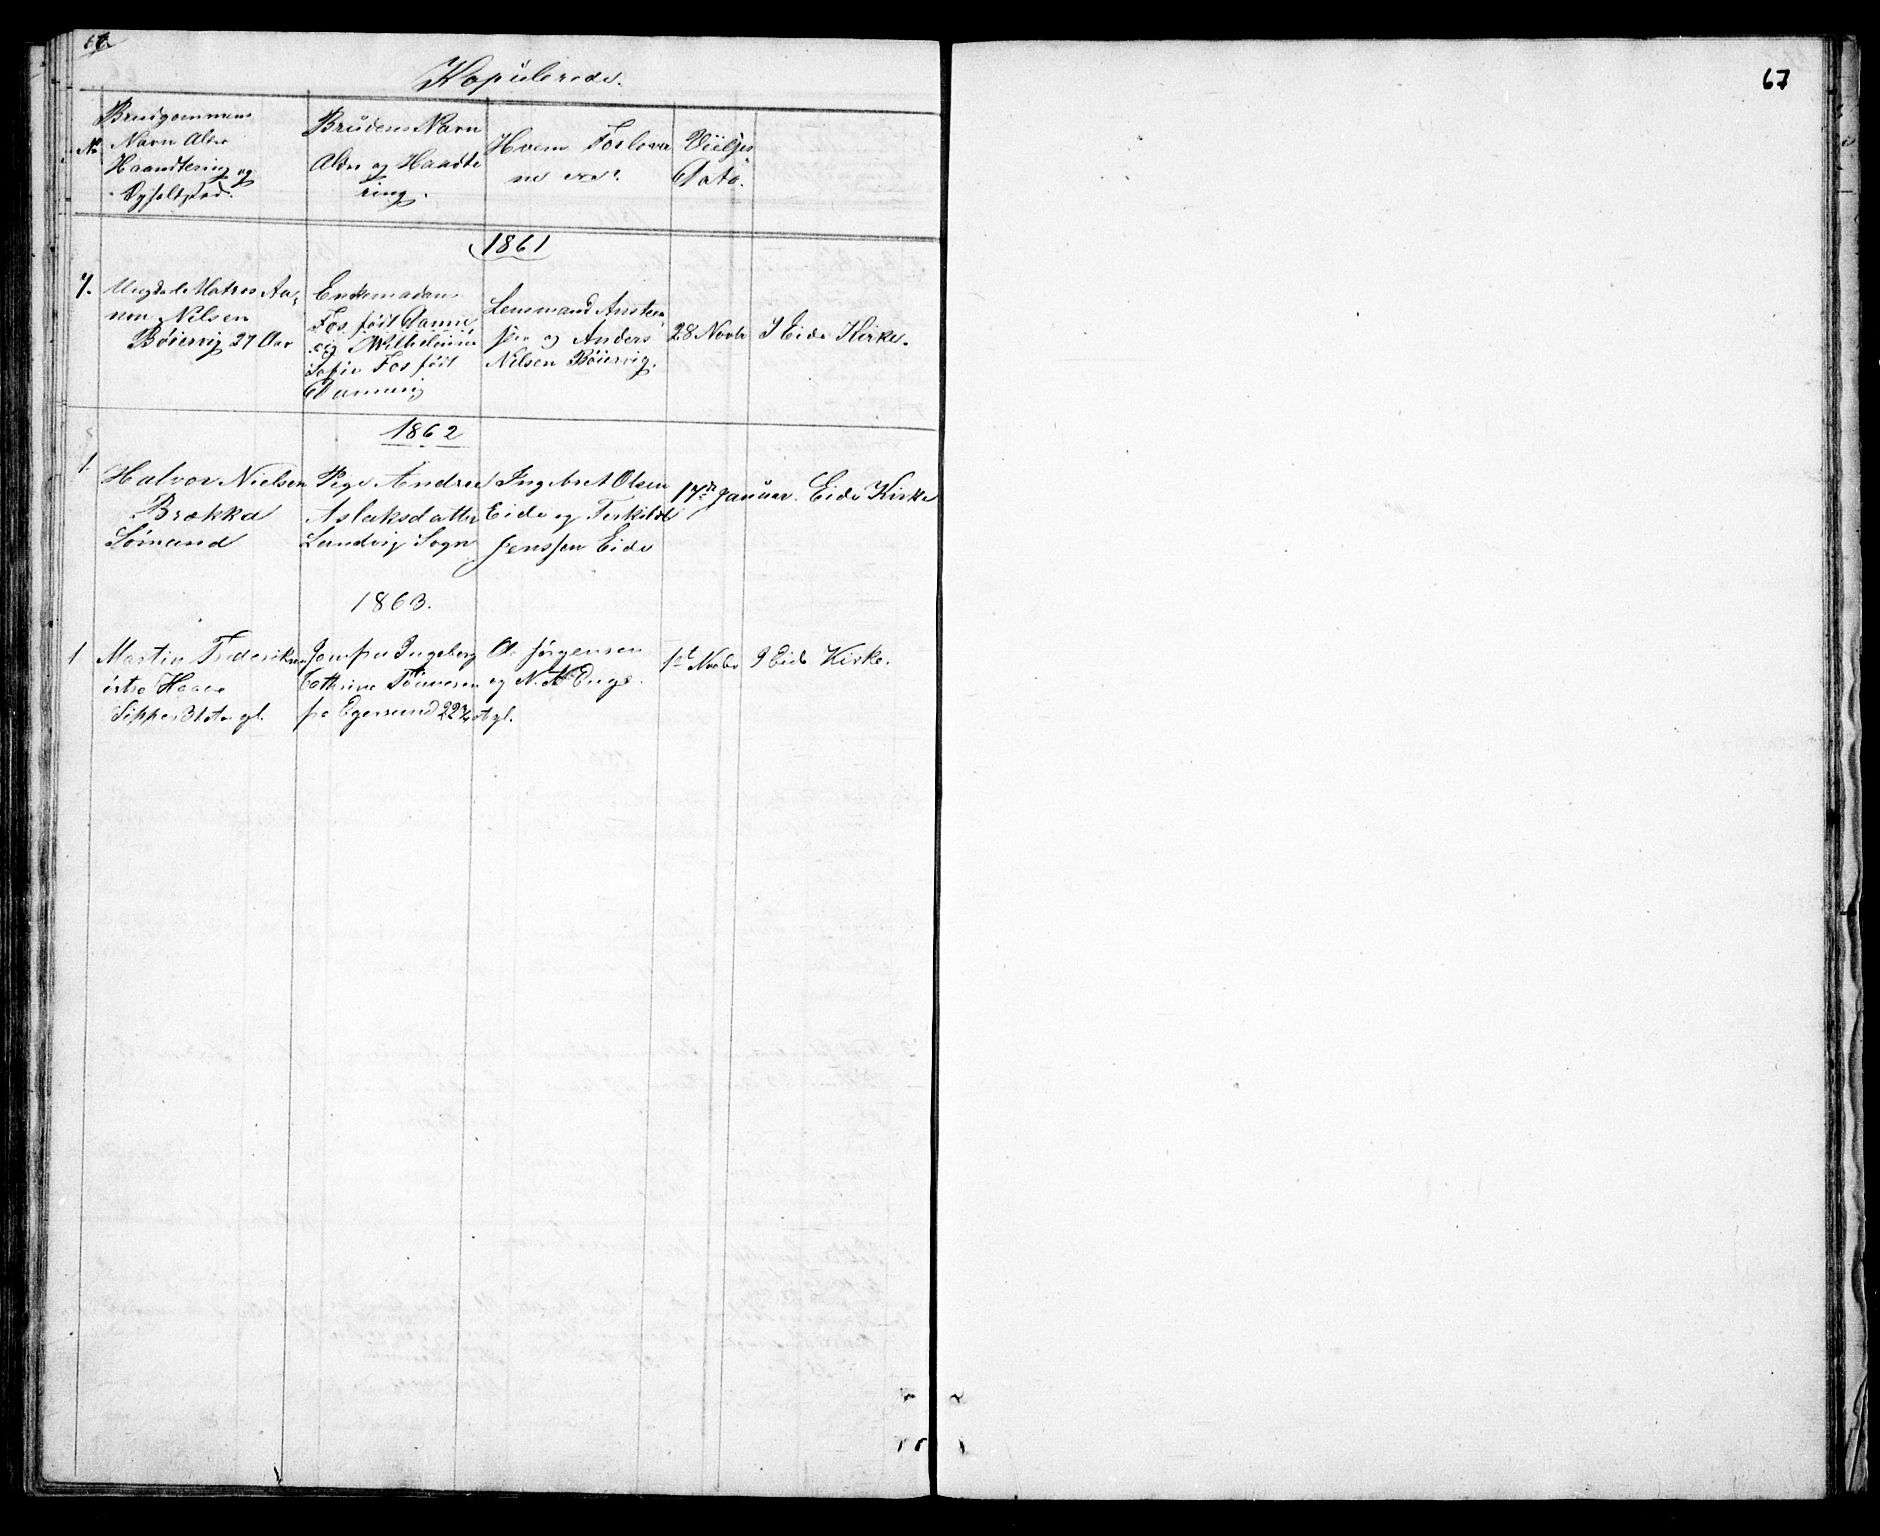 67
Kopulerede.
No
Brudgommens
Navn Alder
Haandtering og
Opholdsted.
Brudens Navn
Alder og Haandte
ring.
Hvem Forlover
ne ere?
Vielses
Dato.
1861
7.
Ungkarl Matros Aa-
non Nilsen
Böiervig 27 Aar
Enkemadam
Fos födt
Wilhelmine
Sofie Fos födt
Lensmand
og Anders
Nilsen Böiervig.
28 Novbr
I Eide Kirke.
1862
1.
Halvor Nielsen
Brækka
Sömand
Pige Andrea
Aslaksdatter
Landvig Sogn
Ingebret Olsen
Eide og Terkild
Jenssen Eide
17de Januar.
Eide Kirke
1863.
1
Martin Frederiksen
östre
Skipper 31 Aar gl.
Jomfru Ingeborg
Cathrine Tönnesen
fra Egersund 22 3/4 At gl.
O. Jörgensen
og N. N. Enge.
1st Novbr
I Eide Kirke.